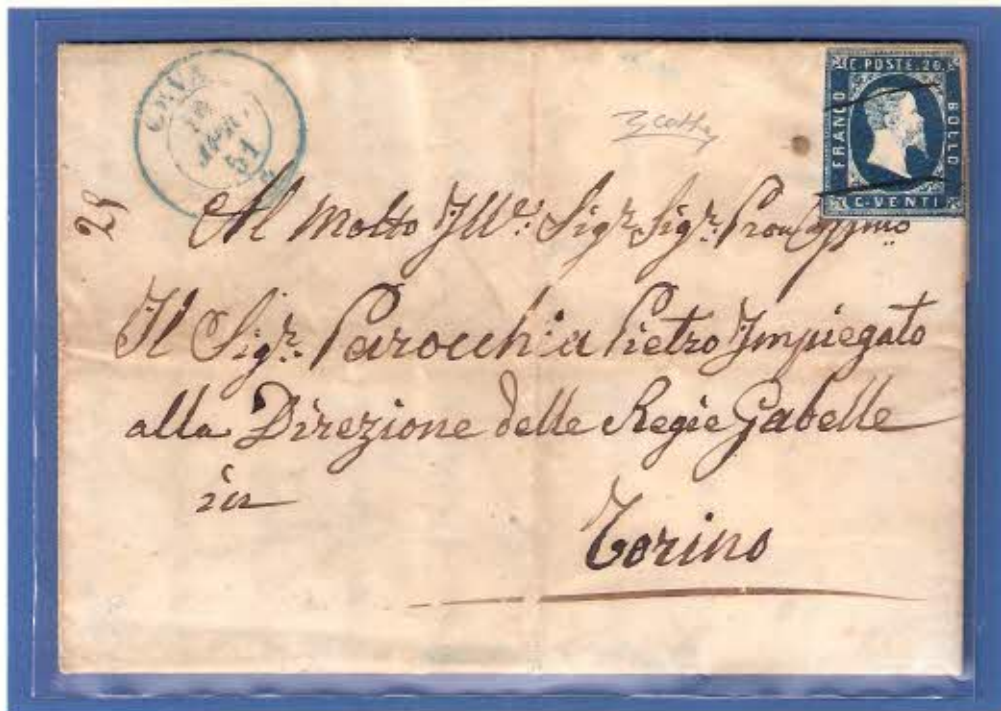 CEVA
51
C. POSTE. 20.
FRANCO
BOLLO
C. VENTI
Al Molto Ill.e Sig.r Sig.r Pron
Il Sig.r Parocchia Pietro Impiegato
alla Direzione delle Regie Gabelle
in
Torino